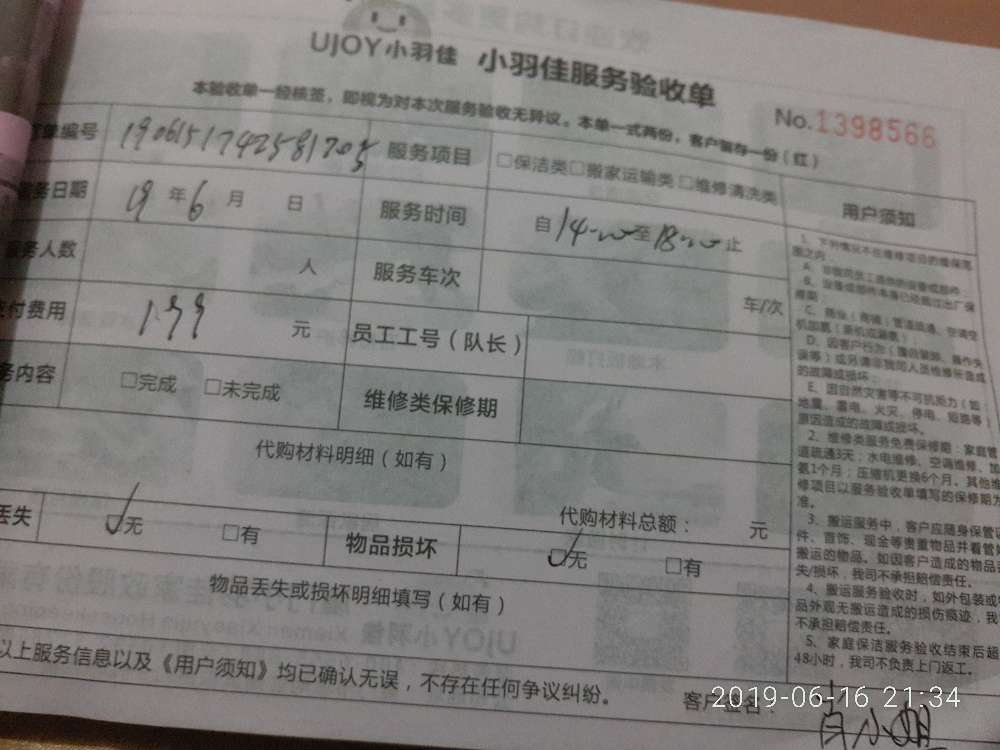 UJOY小羽佳 小羽佳服务验收单
本验收单一经核签，即视为对本次服务验收无异议。本单一式两份，客户留存一份（红）
No.1398566
单编号 190615174258170 服务项目 □保洁类□搬家运输类 □维修清洗类
务日期 19 年 6 月 日 服务时间 自 14 至 18 止
服务人数 人 服务车次 车/次
付费用 199 元 员工工号（队长）
务内容 □完成 □未完成 维修类保修期
代购材料明细（如有）
代购材料总额： 元
丢失 □无 □有 物品损坏 □无 □有
物品丢失或损坏明细填写（如有）
以上服务信息以及《用户须知》均已确认无误，不存在任何争议纠纷。
客户签名：
用户须知
1、下列情况不在维修项目的维保范
围之内
A、非我司员工
B、设备或部件本身已经超过出厂保
修期
D、因客户行为
的故障或损坏；
E、因自然灾害等不可抗力（如：
地震、雷电、火灾、停电、短路等）
原因造成的故障或损坏。
2、维修类服务免费保修期：家庭管
道疏通3天；水电维修、空调维修、加
氨1个月；压缩机更换6个月。其他维
修项目以服务验收单填写的保修期为
准。
3、搬运服务中，客户应随身保管证
件、首饰、现金等贵重物品并看管好
搬运的物品。如因客户造成的物品丢
失/损坏，我司不承担赔偿责任。
4、搬运服务验收时，如外包装或物
品外观无搬运造成的损伤痕迹，我司
不承担赔偿责任。
5、家庭保洁服务验收结束后超
48小时，我司不负责上门返工。
2019-06-16 21:34